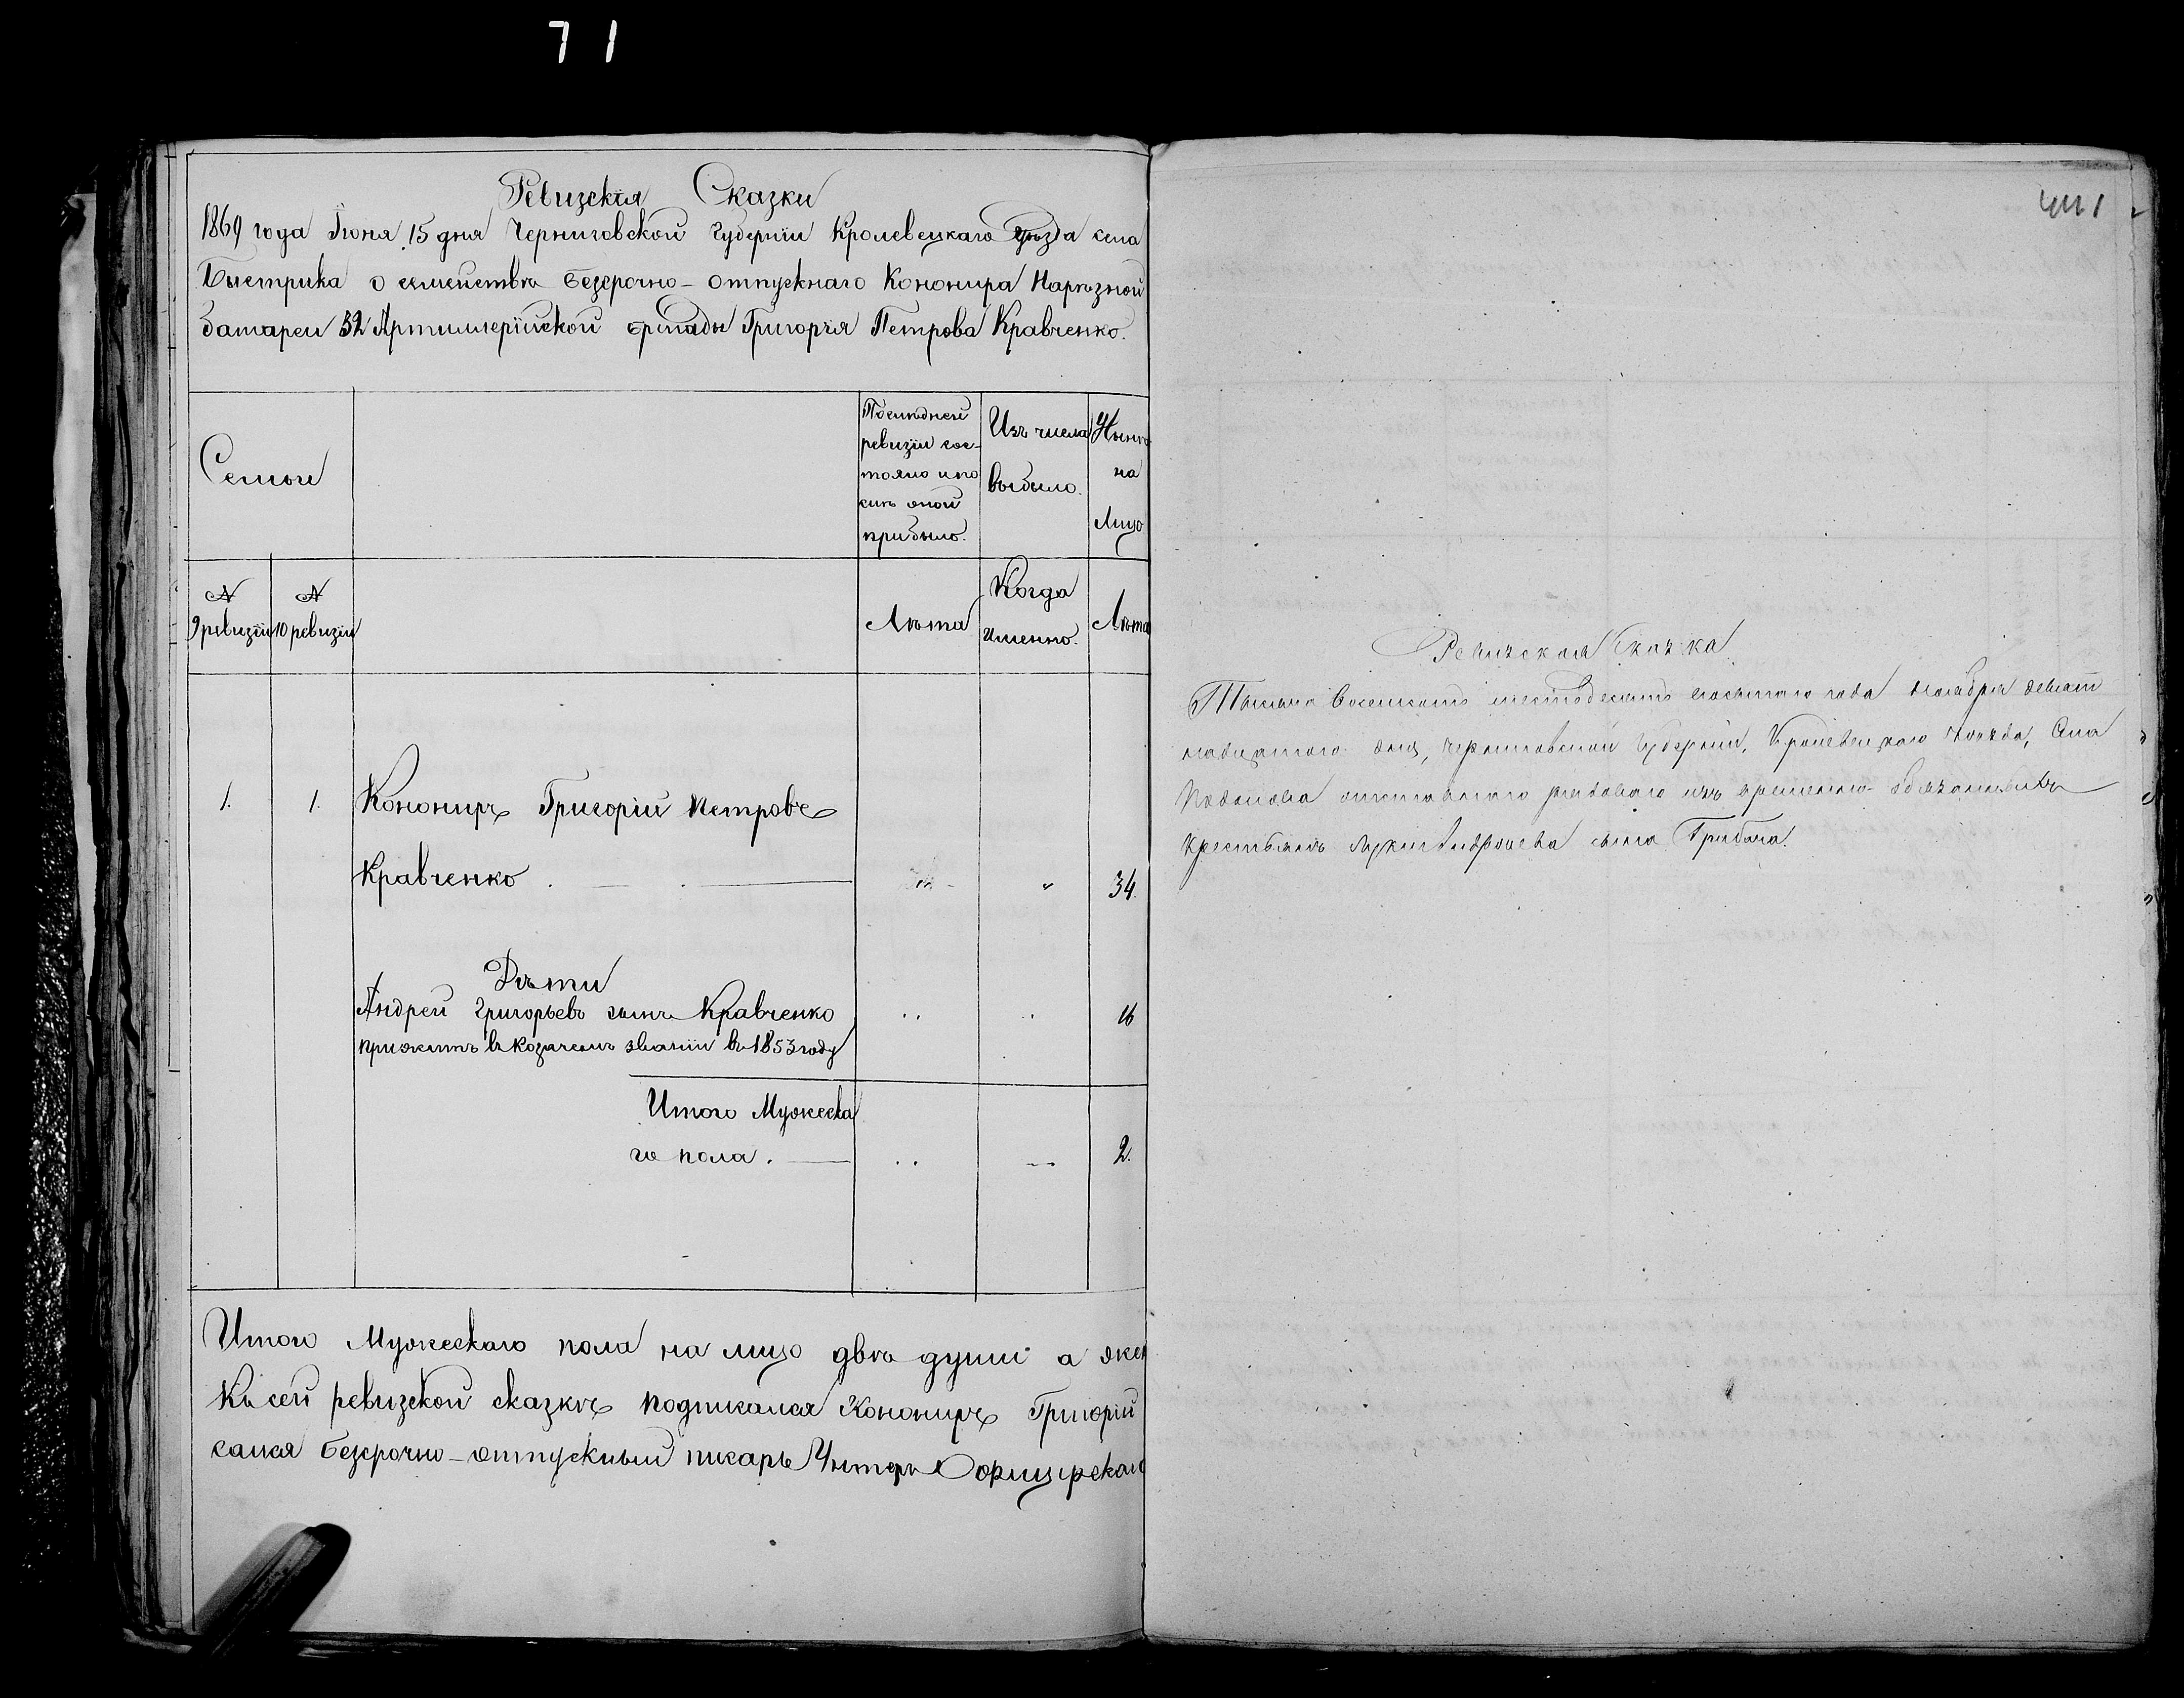 71
Ревизскія Сказки
1869 года Іюня 15 дня Черниговской Губерніи Кролевецкаго Уѣзда села
Быстрика о семействѣ безсрочно-отпускнаго Канонира Нарѣзной
батареи 32 Артиллерійской бригады Григорія Петрова Кравченко.
Семьи
Послѣдней
ревизіи сос-
тояло и по
слѣ оной
прибыло.
Изъ числа
выбыло.
Нынѣ
на
Лицо
№
9 ревизіи
№
10 ревизіи
Лѣта
Когда
именно.
Лѣта
1. 1. Конониръ Григорій Петровъ
Кравченко . " 34.
Дѣти
Андрей Григорьевъ сынъ Кравченко 16
прижитъ въ козачемъ званіи въ 1853 году
Итого Мужеска
го пола. 2.
Итого Мужескаго пола на лицо двѣ души а жен
Къ сей ревизской сказкѣ подписался Конониръ Григорій
сался безсрочно-отпускный писарь Унтеръ Офицерскаго
441
Ревизская Сказка
Тысяча восемсотъ шестьдесятъ года Ноября девят
надцатого дня, Черниговской Губерніи, Кролевецкаго уѣзда, Села
Подолова отставнаго рядоваго изъ временно-обязанныхъ
крестьянъ Луки Андреева сына Грибана.